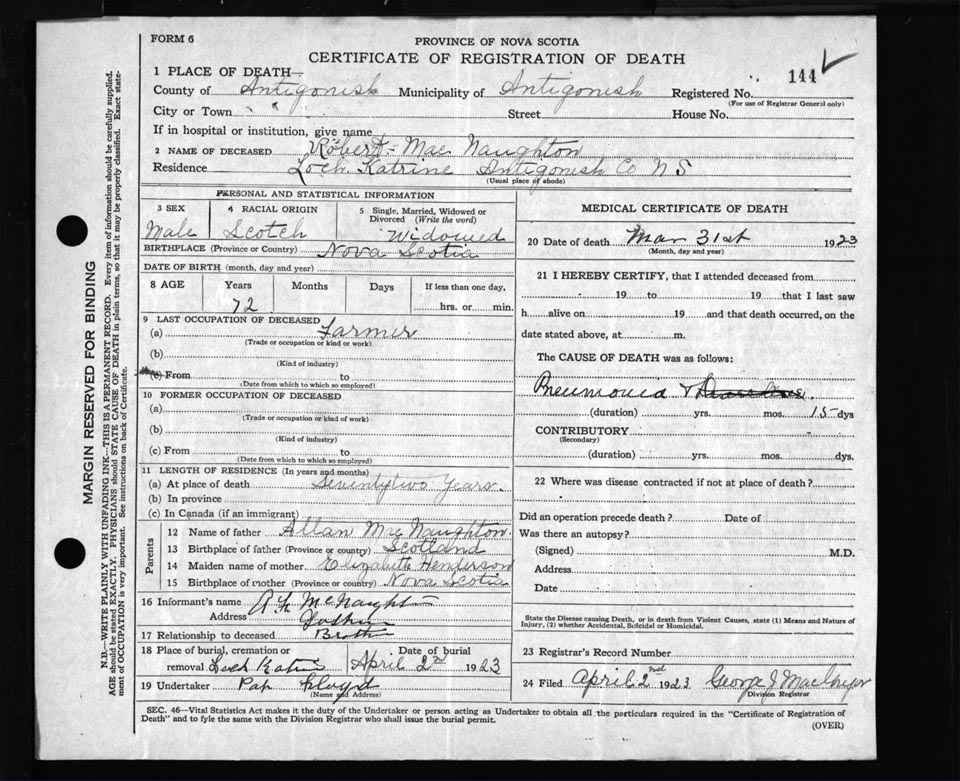 FORM 6
PROVINCE OF NOVA SCOTIA
CERTIFICATE OF REGISTRATION OF DEATH
144
1 PLACE OF DEATH
County of Antigonish Municipality of Antigonish Registered No.
(For use of Registrar General only)
City or Town " " Street House No.
If in hospital or institution, give name
2 NAME OF DECEASED Robert Mac Naughton
Residence Loch Katrine Antigonish Co N S
(Usual place of abode)
PERSONAL AND STATISTICAL INFORMATION
3 SEX 4 RACIAL ORIGIN 5 Single, Married, Widowed or Divorced (Write the word)
Male Scotch Widowed
BIRTHPLACE (Province or Country) Nova Scotia
DATE OF BIRTH (month, day and year)
8 AGE Years Months Days If less than one day,
72 hrs. or min.
9 LAST OCCUPATION OF DECEASED
(a) Farmer
(Trade or occupation or kind or work)
(b)
(Kind of industry)
(c) From to
(Date from which to which so employed)
10 FORMER OCCUPATION OF DECEASED
(a)
(Trade or occupation or kind of work)
(b)
(Kind of industry)
(c) From to
(Date from which to which so employed)
11 LENGTH OF RESIDENCE (In years and months)
(a) At place of death Seventytwo Years.
(b) In province
(c) In Canada (if an immigrant)
Parents
12 Name of father Allan Mac Naughton
13 Birthplace of father (Province or country) Scotland
14 Maiden name of mother Elizabeth Henderson
15 Birthplace of mother (Province or country) Nova Scotia
16 Informant's name A McNaughton
Address
17 Relationship to deceased Brother
18 Place of burial, cremation or removal Loch Katrine Date of burial April 2nd 1923
19 Undertaker Pat Floyd
(Name and Address)
MEDICAL CERTIFICATE OF DEATH
20 Date of death Mar 31st 1923
(Month, day and year)
21 I HEREBY CERTIFY, that I attended deceased from
19 to 19 that I last saw
h alive on 19 and that death occurred, on the
date stated above, at m.
The CAUSE OF DEATH was as follows:
Pneumonia &
(duration) yrs. mos. 15 dys
CONTRIBUTORY
(Secondary)
(duration) yrs. mos. dys.
22 Where was disease contracted if not at place of death?
Did an operation precede death? Date of
Was there an autopsy?
(Signed) M.D.
Address
Date
State the Disease causing Death, or in death from Violent Causes, state (1) Means and Nature of
Injury, (2) whether Accidental, Suicidal or Homicidal.
23 Registrar's Record Number
24 Filed April 2nd 1923 George J
Division Registrar
SEC. 46—Vital Statistics Act makes it the duty of the Undertaker or person acting as Undertaker to obtain all the particulars required in the "Certificate of Registration of
Death" and to fyle the same with the Division Registrar who shall issue the burial permit.
(OVER)
MARGIN RESERVED FOR BINDING
N.B.—WRITE PLAINLY WITH UNFADING INK—THIS IS A PERMANENT RECORD. Every item of information should be carefully supplied.
AGE should be stated EXACTLY. PHYSICIANS should STATE CAUSE OF DEATH in plain terms, so that it may be properly classified. Exact state-
ment of OCCUPATION is very important. See instructions on back of Certificate.